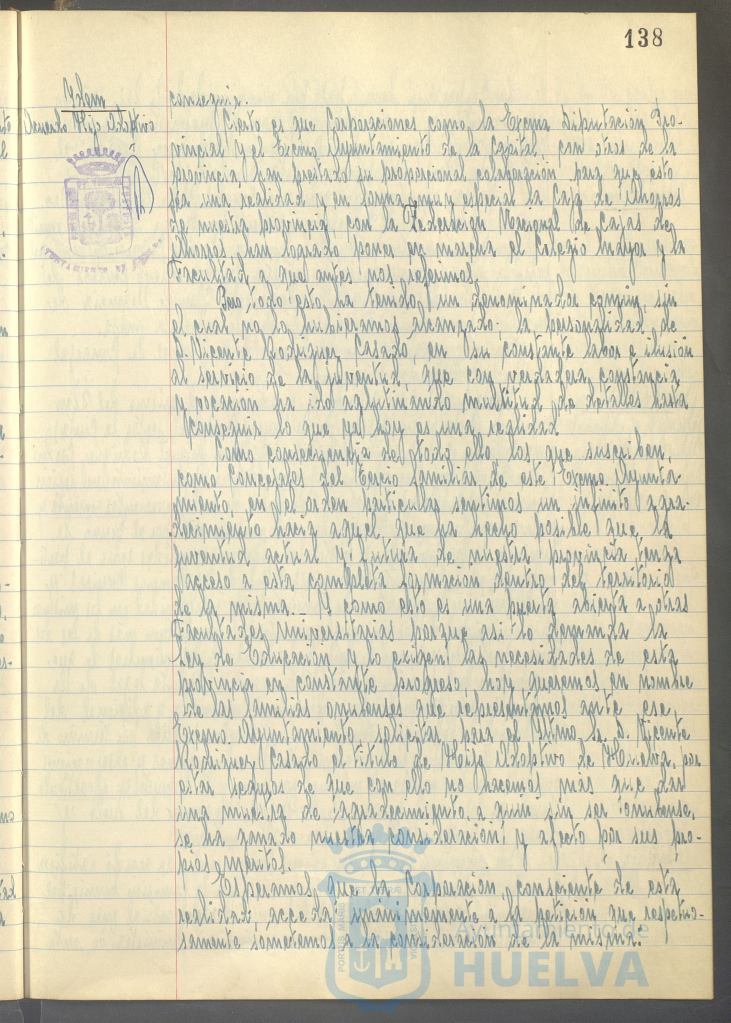 138
Idem
Acuerdo Hijo Adoptivo
AYUNTAMIENTO DE HUELVA
conseguir.
Cierto es que Corporaciones como la Excma Diputación Pro-
vincial y el Excmo Ayuntamiento de la Capital, con otros de la
provincia, han prestado su proporcional colaboración para que esto
sea una realidad y en forma muy especial la Caja de Ahorros
de nuestra provincia, con la Federación Nacional de Cajas de
Ahorros, han logrado poner en marcha el Colegio Mayor y la
Facultad a que antes nos referimos.
Pero todo esto ha tenido un denominador común, sin
el cual no lo hubieramos alcanzado; la personalidad de
D. Vicente Rodriguez Casado, en su constante labor e ilusión
al servicio de la juventud, que con verdadera constancia
y vocación ha ido aglutinando multitud de detalles hasta
conseguir lo que ya hoy es una realidad
Como consecuencia de todo ello, los que suscriben,
como Concejales del Tercio familiar de este Excmo. Ayunta
miento, en el orden particular sentimos un infinito agra-
decimiento hacia aquel que ha hecho posible que la
juventud actual y futura de nuestra provincia tenga
acceso a esta completa formación dentro del territorio
de la misma.- Y como esto es una puerta abierta a otras
Facultades Universitarias porque asi lo demanda la
Ley de Educación y lo exigen las necesidades de esta
provincia en constante progreso, hoy queremos en nombre
de las familias onubenses que representamos ante ese
Excmo. Ayuntamiento, solicitar para el Iltmo. Sr. D. Vicente
Rodriguez Casado el titulo de Hijo Adoptivo de Huelva, por
estar seguros de que con ello no hacemos más que dar
una muestra de agradecimiento a quien sin ser onubense,
se ha ganado nuestra consideración y afecto por sus pro-
pios meritos.
Esperamos que la Corporación, consciente de esta
realidad, acceda unanimemente a la petición que respetuo-
samente sometemos a la consideración de la misma."
Ayuntamiento de
HUELVA